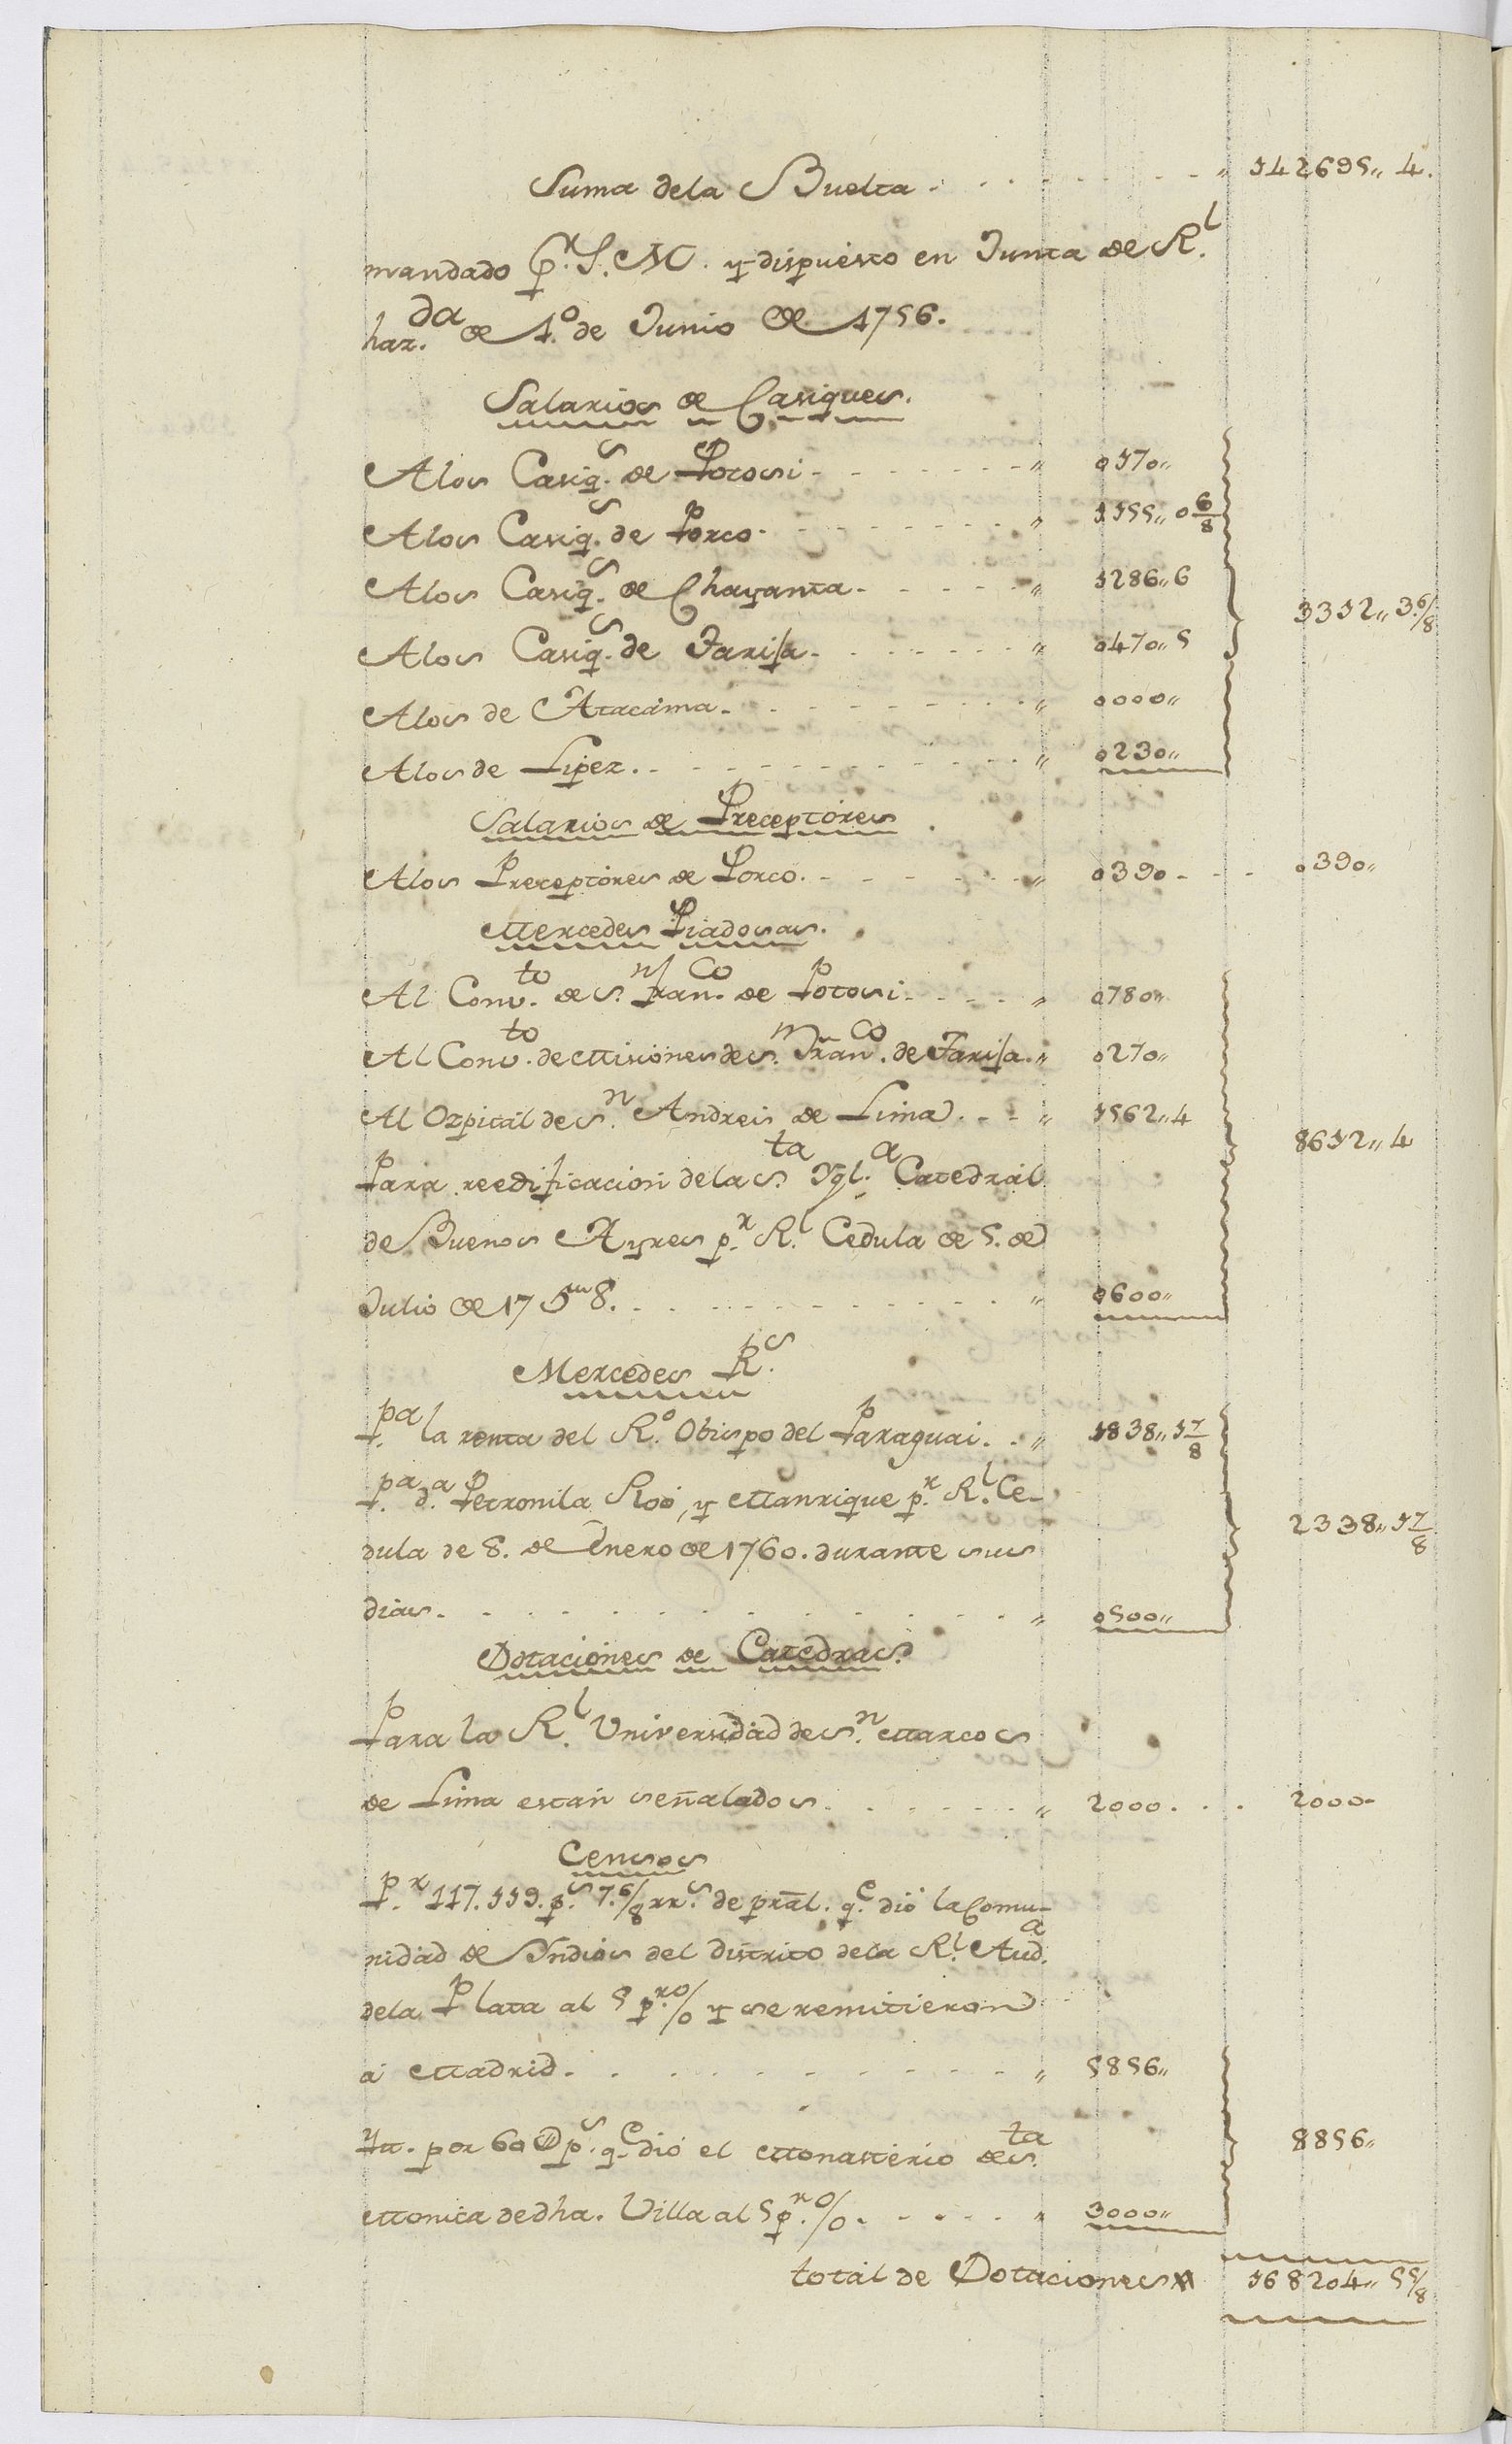 Suma dela Buelta . . . . . . . " 142695,, 4.
mandado p.r S. M. y dispuesto en Junta de R.l
haz.da de 1.o de Junio de 1756.
Salarios de Casiques.
Alos Casiq.s de Potosi - - - - - - - " 0170,,
Alos Casiq.s de Porco - - - - - - - " 1155,, 0 6/8
Alos Casiq.s de Chayanta - - - - - " 1286,, 6
3312,, 3 6/8
Alos Casiq.s de Tarija - - - - - - " 0470,, 5
Alos de Atacama - - - - - - - - " 0000,,
Alos de Lipez. - - - - - - - - - " 0230,,
Salarios de Preceptores
Alos Preceptores de Porco. - - - - - - " 0390 - - - 0390,,
Mercedes Piadosas.
Al Conv.to de S.n Fran.co de Potosi - - - - " 0780,,
Al Conv.to de Misiones de S.n Fran.co de Tarija. " 0270,,
Al Ozpital de S.n Andres de Lima. - - " 1562,, 4
8612,, 4
Para reedificacion dela S.ta Ygl.a Catedral
de Buenos Ayres p.r R.l Cedula de 5. de
Julio de 1758. - - - - - - - - - " 0600,,
Mercedes R.s
P.pa la renta del R.o Obispo del Paraguai. . " 1838,, 1 7/8
P.pa d.a Petronila Roó, y Manrique p.r R.l Ce-
2338,, 1 7/8
dula de 8. de Enero de 1760. durante sus
dias. . . . . . . . . . . . . " 0500,,
Dotaciones de Catedras.
Para la R.l Universidad de S.n Marcos
de Lima estan señalados. . . . . . . " 2000. . . 2000-
Censos
P.r 117.119. p.s 7. 6/8 rr.s de pral. q.e dio la Comu-
nidad de Yndios del distrito dela R.l Aud.a
dela Plata al 5 p.r o/o y se remitieron
á Madrid. . . . . . . . . . . " 5856,,
Ytt. por 60 @ p.s q.e dió el Monasterio de S.ta
8856,,
Monica de dha. Villa al 5 p.r o/o. - - - - - " 3000,,
total de Dotaciones " 168204,, 5 5/8